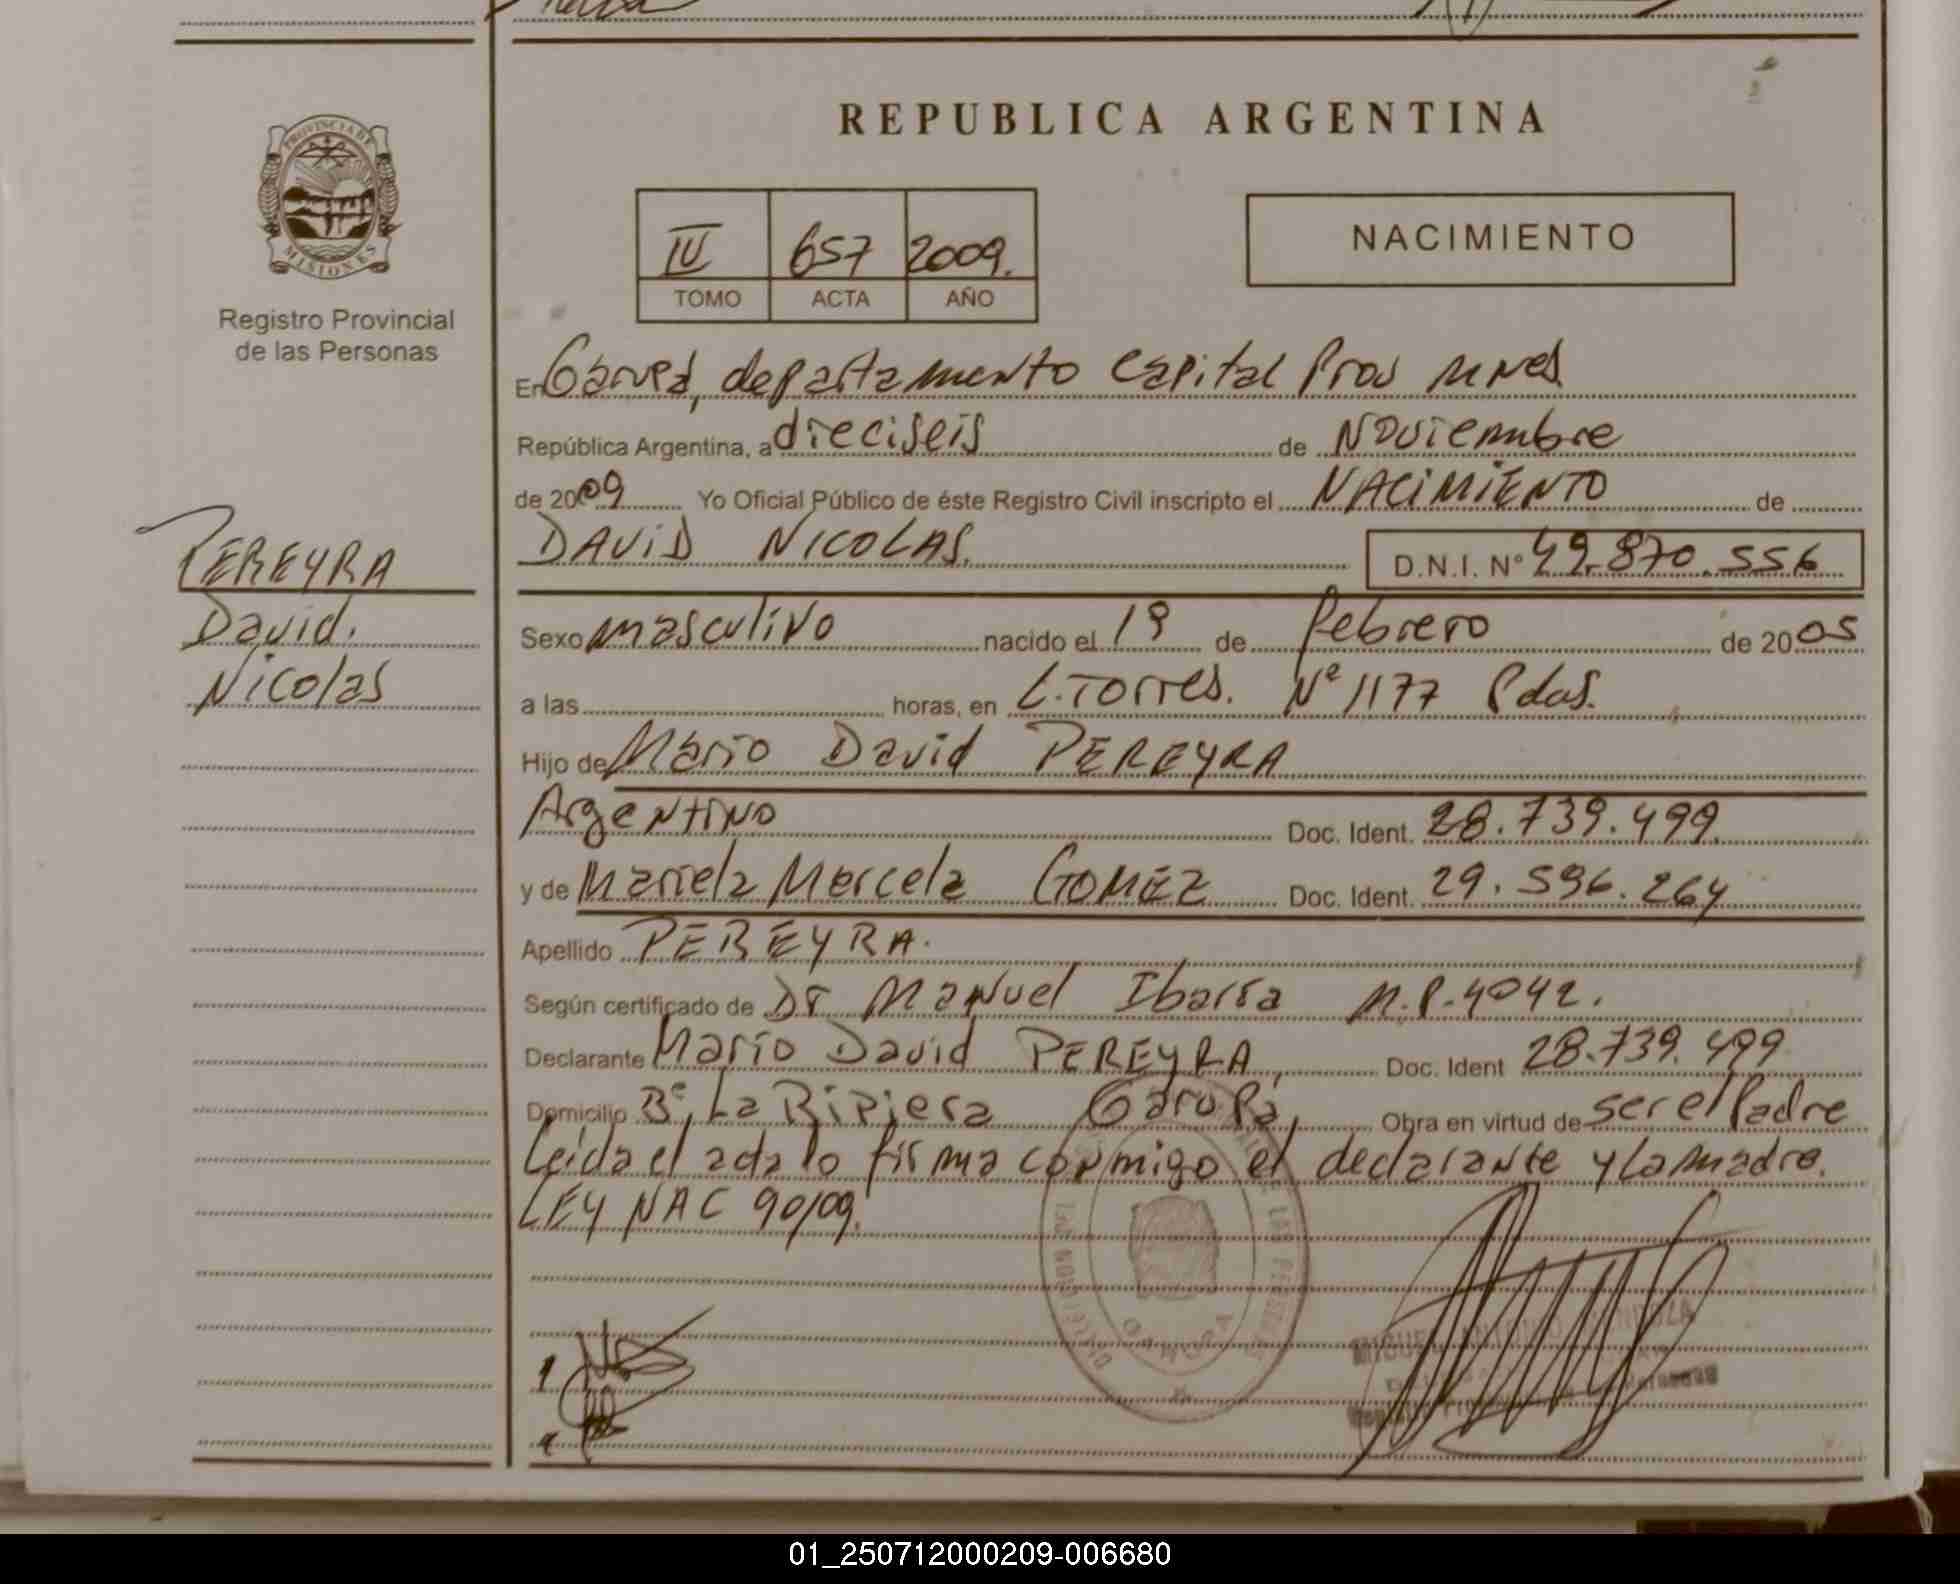 PROVINCIA DE
MISIONES
Registro Provincial
de las Personas
PEREYRA
David.
Nicolas
REPUBLICA ARGENTINA
IV 657 2009.
TOMO ACTA AÑO
NACIMIENTO
En Garupá, departamento Capital Prov Mnes.
República Argentina, a dieciseis de Noviembre
de 2009 Yo Oficial Público de éste Registro Civil inscripto el NACIMIENTO de
DAVID NICOLAS. D.N.I. Nº 49.870.556
Sexo masculino nacido el 19 de febrero de 2005
a las horas, en L. Torres. Nº 1177 Pdas.
Hijo de Mario David PEREYRA
Argentino Doc. Ident. 28.739.499.
y de Mariela Marcela GOMEZ Doc. Ident. 29.596.264
Apellido PEREYRA.
Según certificado de Dr Manuel Ibarra M.P.4042.
Declarante Mario David PEREYRA, Doc. Ident 28.739.499
Domicilio Bº, La Ripiera Garupá, Obra en virtud de ser el Padre
Leida el acta lo firma conmigo el declarante y la madre.
LEY NAC 90/09.
01_250712000209-006680